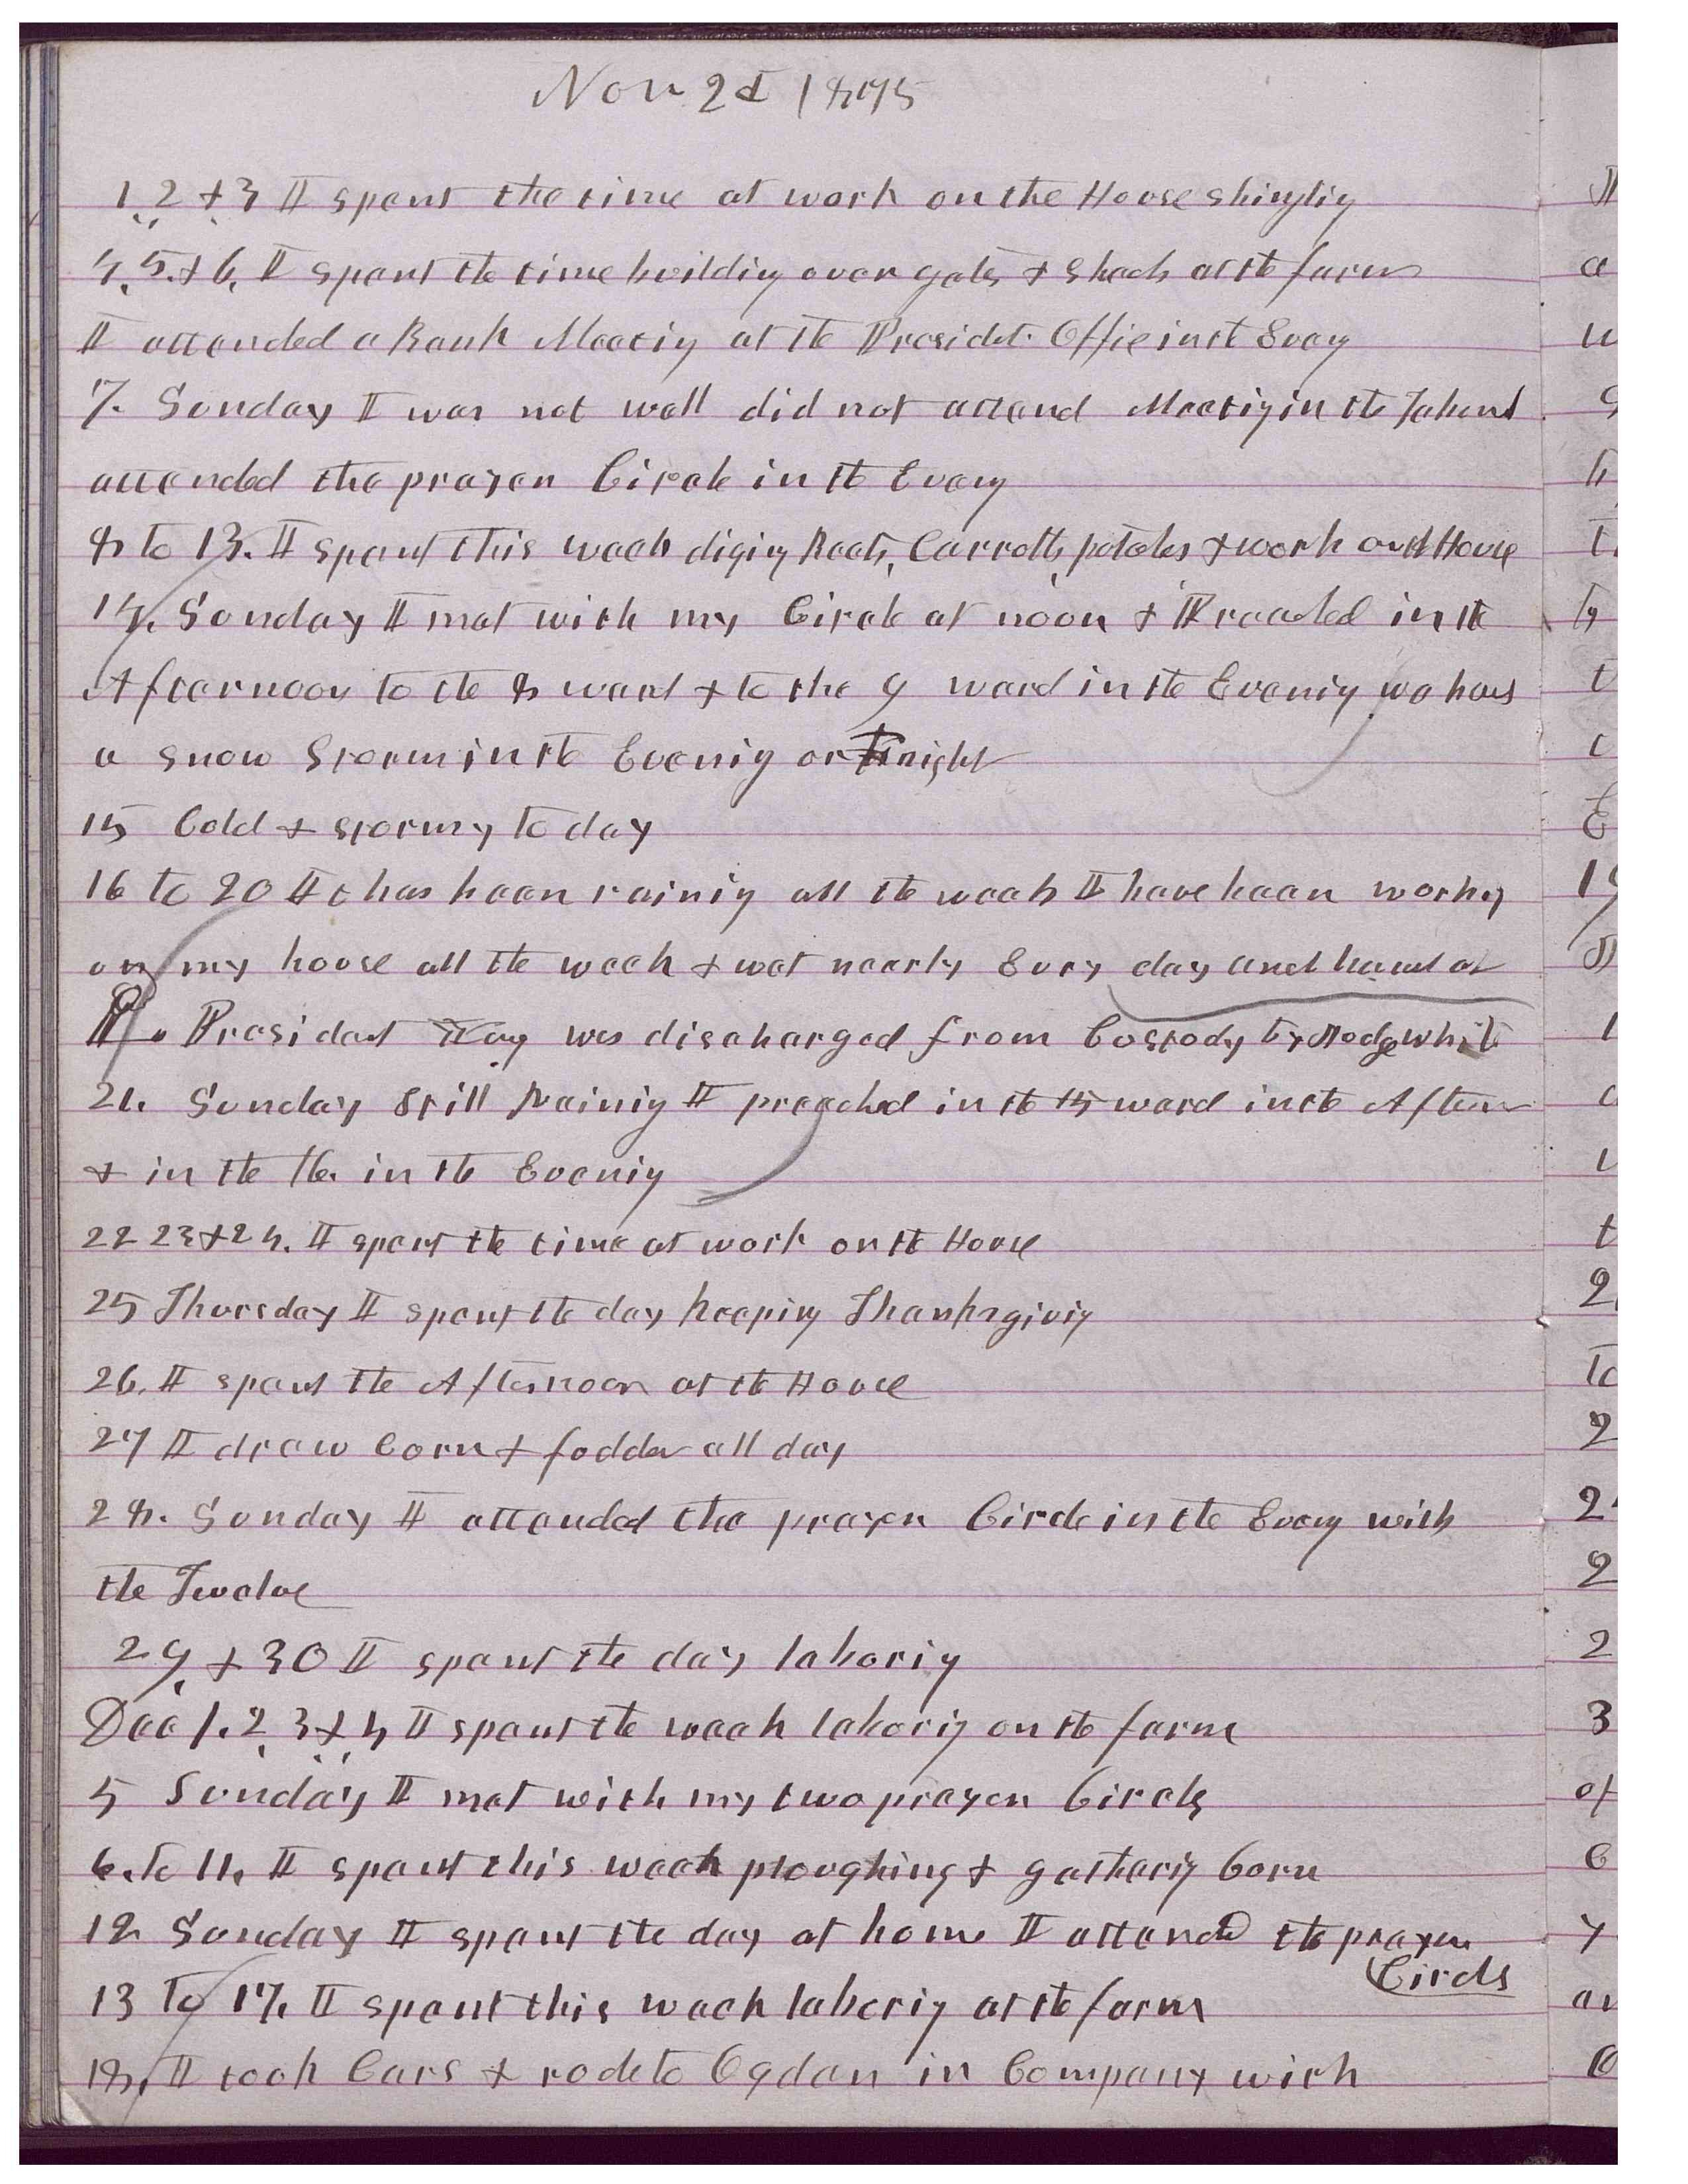 Nov 2d 1875
1, 2, & 3 I spent the time at work on the House shingling
4, 5, & 6, I spent the time building over gates & sheds at the farm
I attended a Bank Meeting at the Presidt. Office in the Eveng
7. Sunday I was not well did not attend Meeting in the
attended the prayer Circle in the Eveng
8 to 13. I spent this week diging Beets, Carrotts, potatoes & work on the House
14, Sunday I met with my Circle at noon & Preached in the
Afternoon to the 8 ward & to the 9 ward in the Evening we had
a snow Storm in the Evening or night
15 Cold & stormy to day
16 to 20 It has been raining all the week I have been worky
on my house all the week & wet nearly Evry day and hard at
it. President Yong was discharged from Custody by Judge White
21. Sunday Still Raining I preached in the 15 ward in the Aftern
& in the 16. in the Evening
22 23 & 24. I spent the time at work on the House
25 Thursday I spent the day keeping Thanksgiving
26. I spent the Afternoon at the House
27 I drew Corn & fodder all day
28. Sunday I attended the prayer Circle in the Eveng with
the Twelve
29, & 30 I spent the day laboring
Dec 1. 2, 3, & 4, I spent the week laboring on the farm
5 Sunday I met with my two prayer Circles
6. to 11. I spent this week ploughing & gathering Corn
12 Sunday I spent the day at home I attend the prayer
Circls
13 to 17. I spent this week laboring at the farm
18, I took Cars & rode to Ogden in Company with